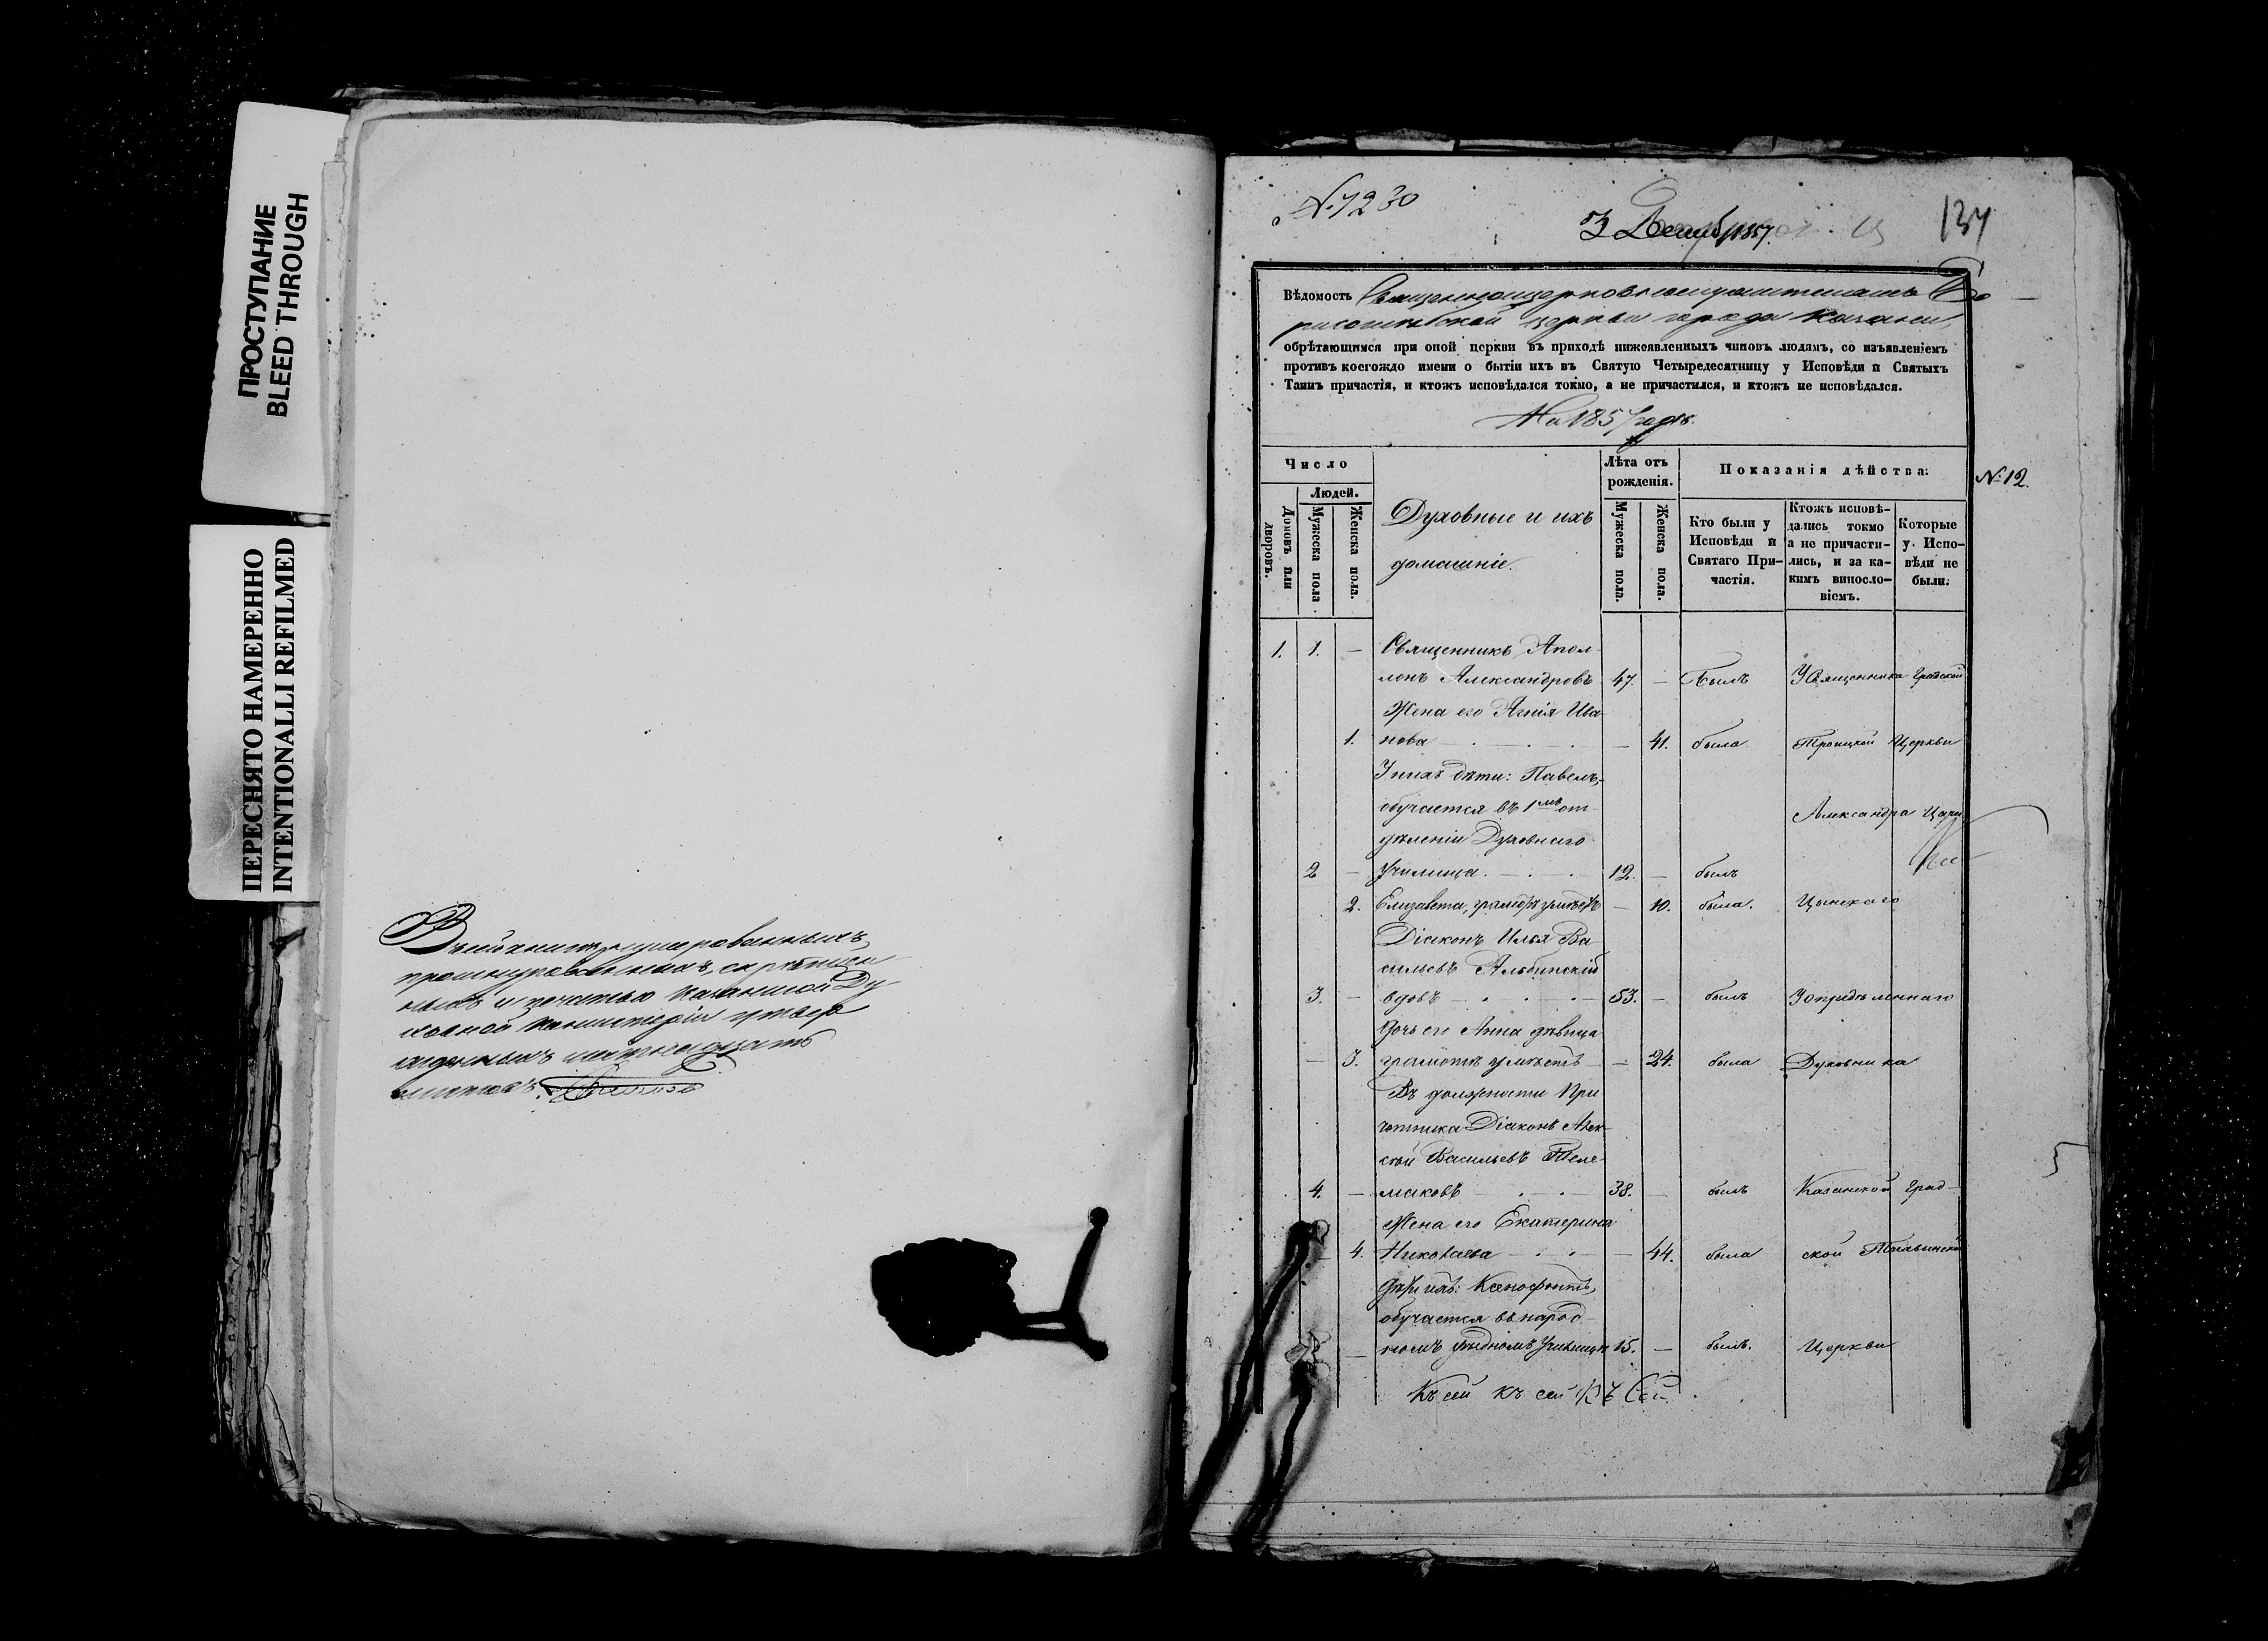 ПРОСТУПАНИЕ
BLEED THROUGH
ПЕРЕСНЯТО НАМЕРЕННО
INTENTIONALLI REFILMED
Въ сей книгѣ нумерованныхъ,
прошнурованныхъ, скрѣплен
ныхъ и печатью Казанской Ду
ховной Консисторіи утвер
жденныхъ
листовъ.
№ 7230
3 Декабр 1857.
137
Вѣдомость Священноцерковнослужителей Бо
рисоглѣбской церкви города Казани,
обрѣтающимся при оной церкви въ приходѣ нижоявленныхъ чиновъ людямъ, со изъявленіемъ
противъ коегождо имени о бытіи ихъ въ Святую Четыредесятницу у Исповѣди и Святыхъ
Таинъ причастія, и ктожъ исповѣдался токмо, а не причастился, и ктожъ не исповѣдался.
На 1857 годъ.
Число
Людей.
Домовъ или дворовъ.
Мужеска пола
Женска пола.
Духовные и ихъ
домашніе.
Лѣта отъ
рожденія.
Мужеска пола.
Женска пола.
Показанія дѣйства:
Кто были у
Исповѣди и
Святаго При-
частія.
Ктожъ исповѣ-
дались токмо
а не причасти-
лись, и за ка-
кимъ винослo-
віемъ.
Которые
у Испо-
вѣди не
были.
№ 12.
1. 1. — Священникъ Апол
лонъ Александровъ 47. — Былъ У Священника Градской
Жена его Агнія Ива
1. нова — 41. была Троицкой Церкви
У нихъ дѣти: Павелъ,
обучается въ 1мъ от Александра Цари
дѣленіи Духовнаго
2 — училища. 12. — былъ
2. Елизавета, грамотѣ умѣетъ — 10. была. Цынскаго
Діаконъ Илья Ва
сильевъ Альбинскій
3. — вдовъ 53. — былъ У опредѣленнаго
дочь его Анна дѣвица
— 3. грамотѣ умѣетъ — 24. была Духовника
Въ должности При
четника Діаконъ Алек
сѣй Васильевъ Теле
4. — маковъ 38. — былъ Казанской Град
Жена его Екатерина
4. Николаева — 44. была ской Тихвинской
Ксенофонтъ,
обучается въ народ
номъ уѣздномъ Училищѣ 15. — былъ. Церкви
Къ сей къ сей Къ Сей